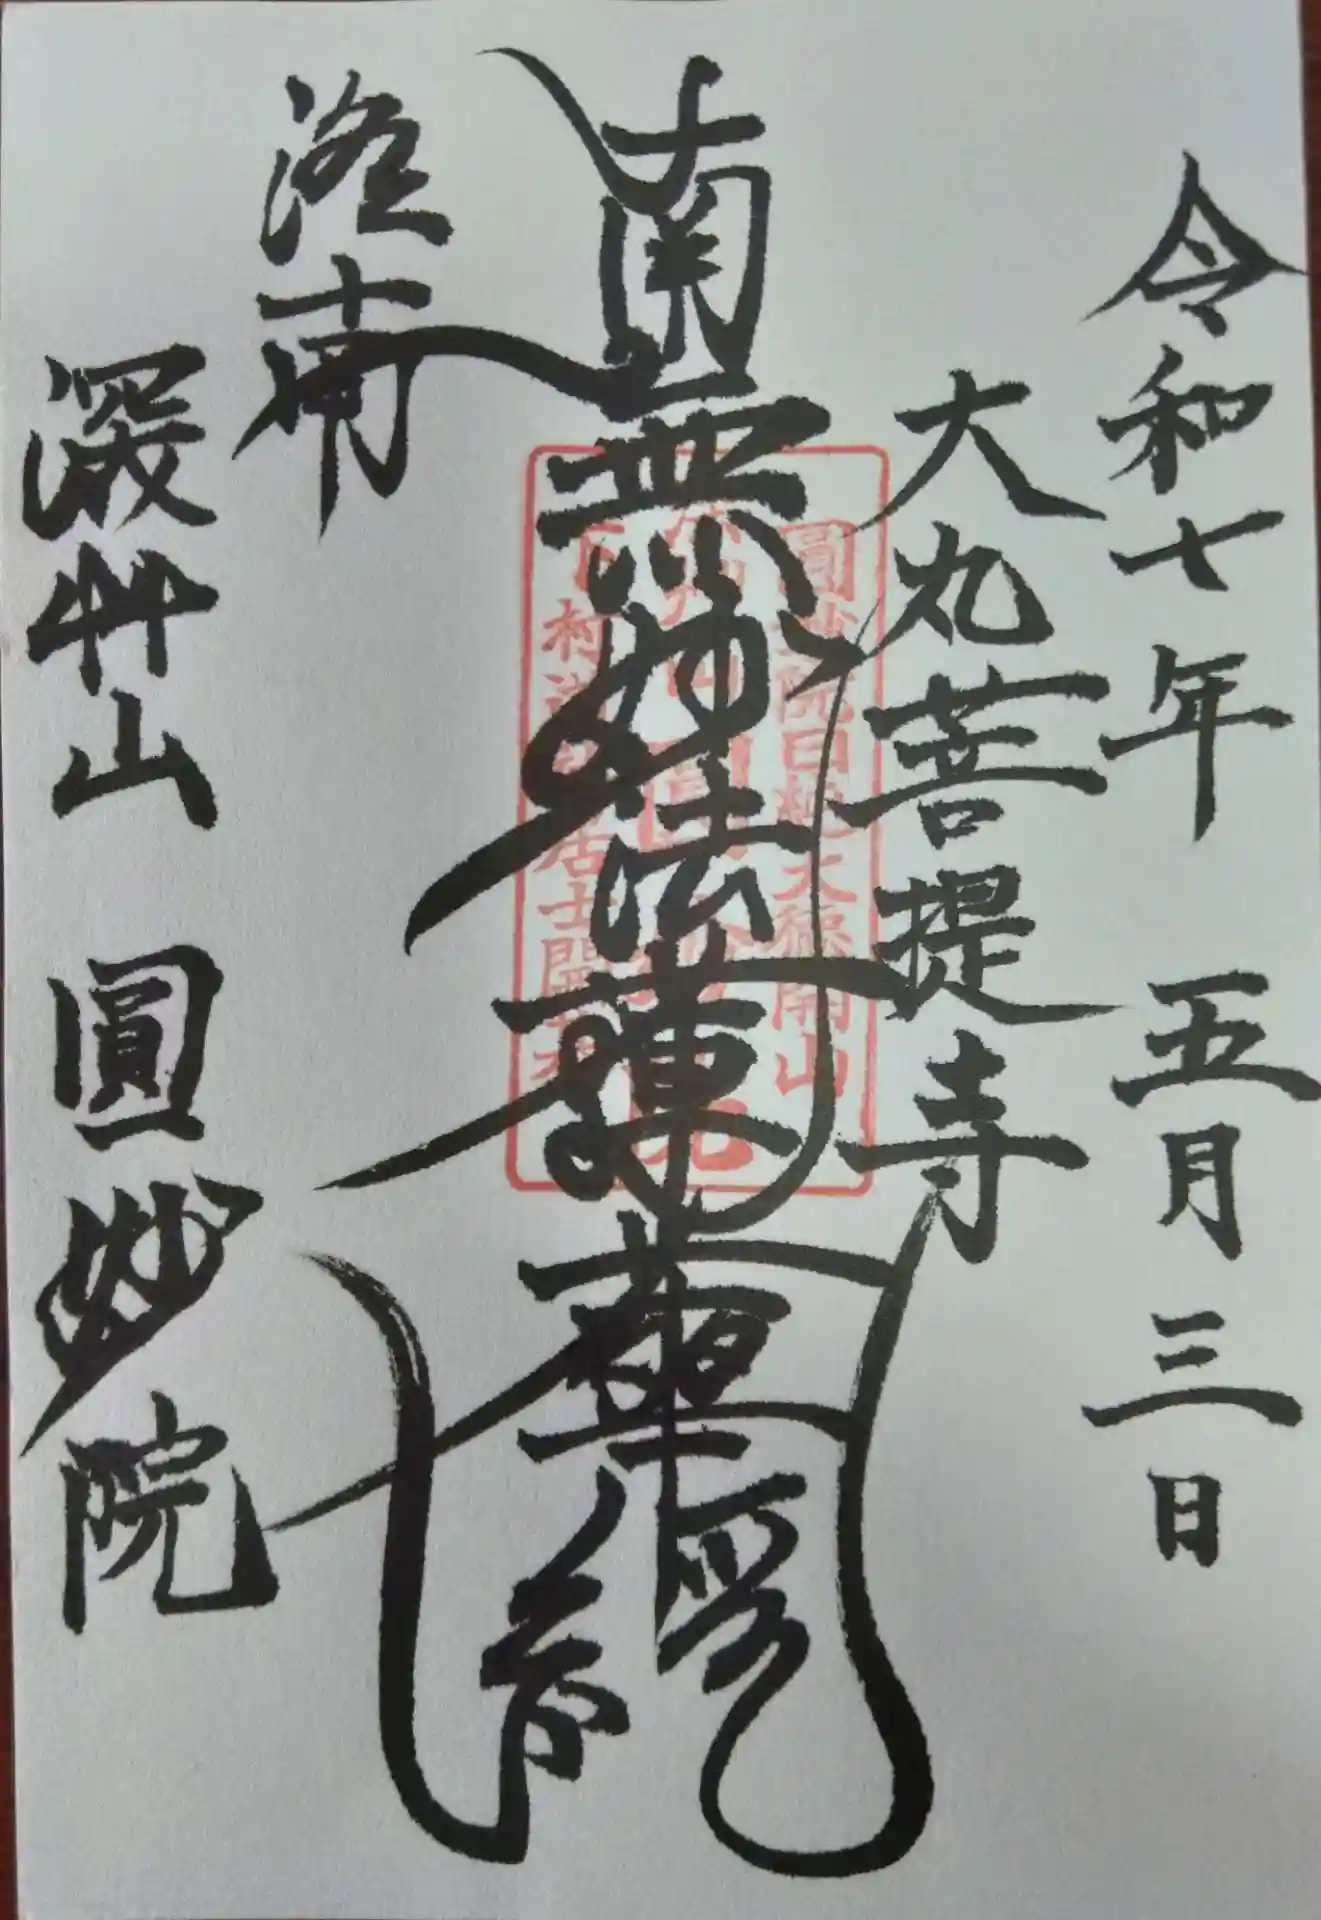 令和七年 五月三日
大丸菩提寺
南無妙法蓮華経
洛南
深艸山 圓妙院
圓妙院日 大德開山
下村 居士開